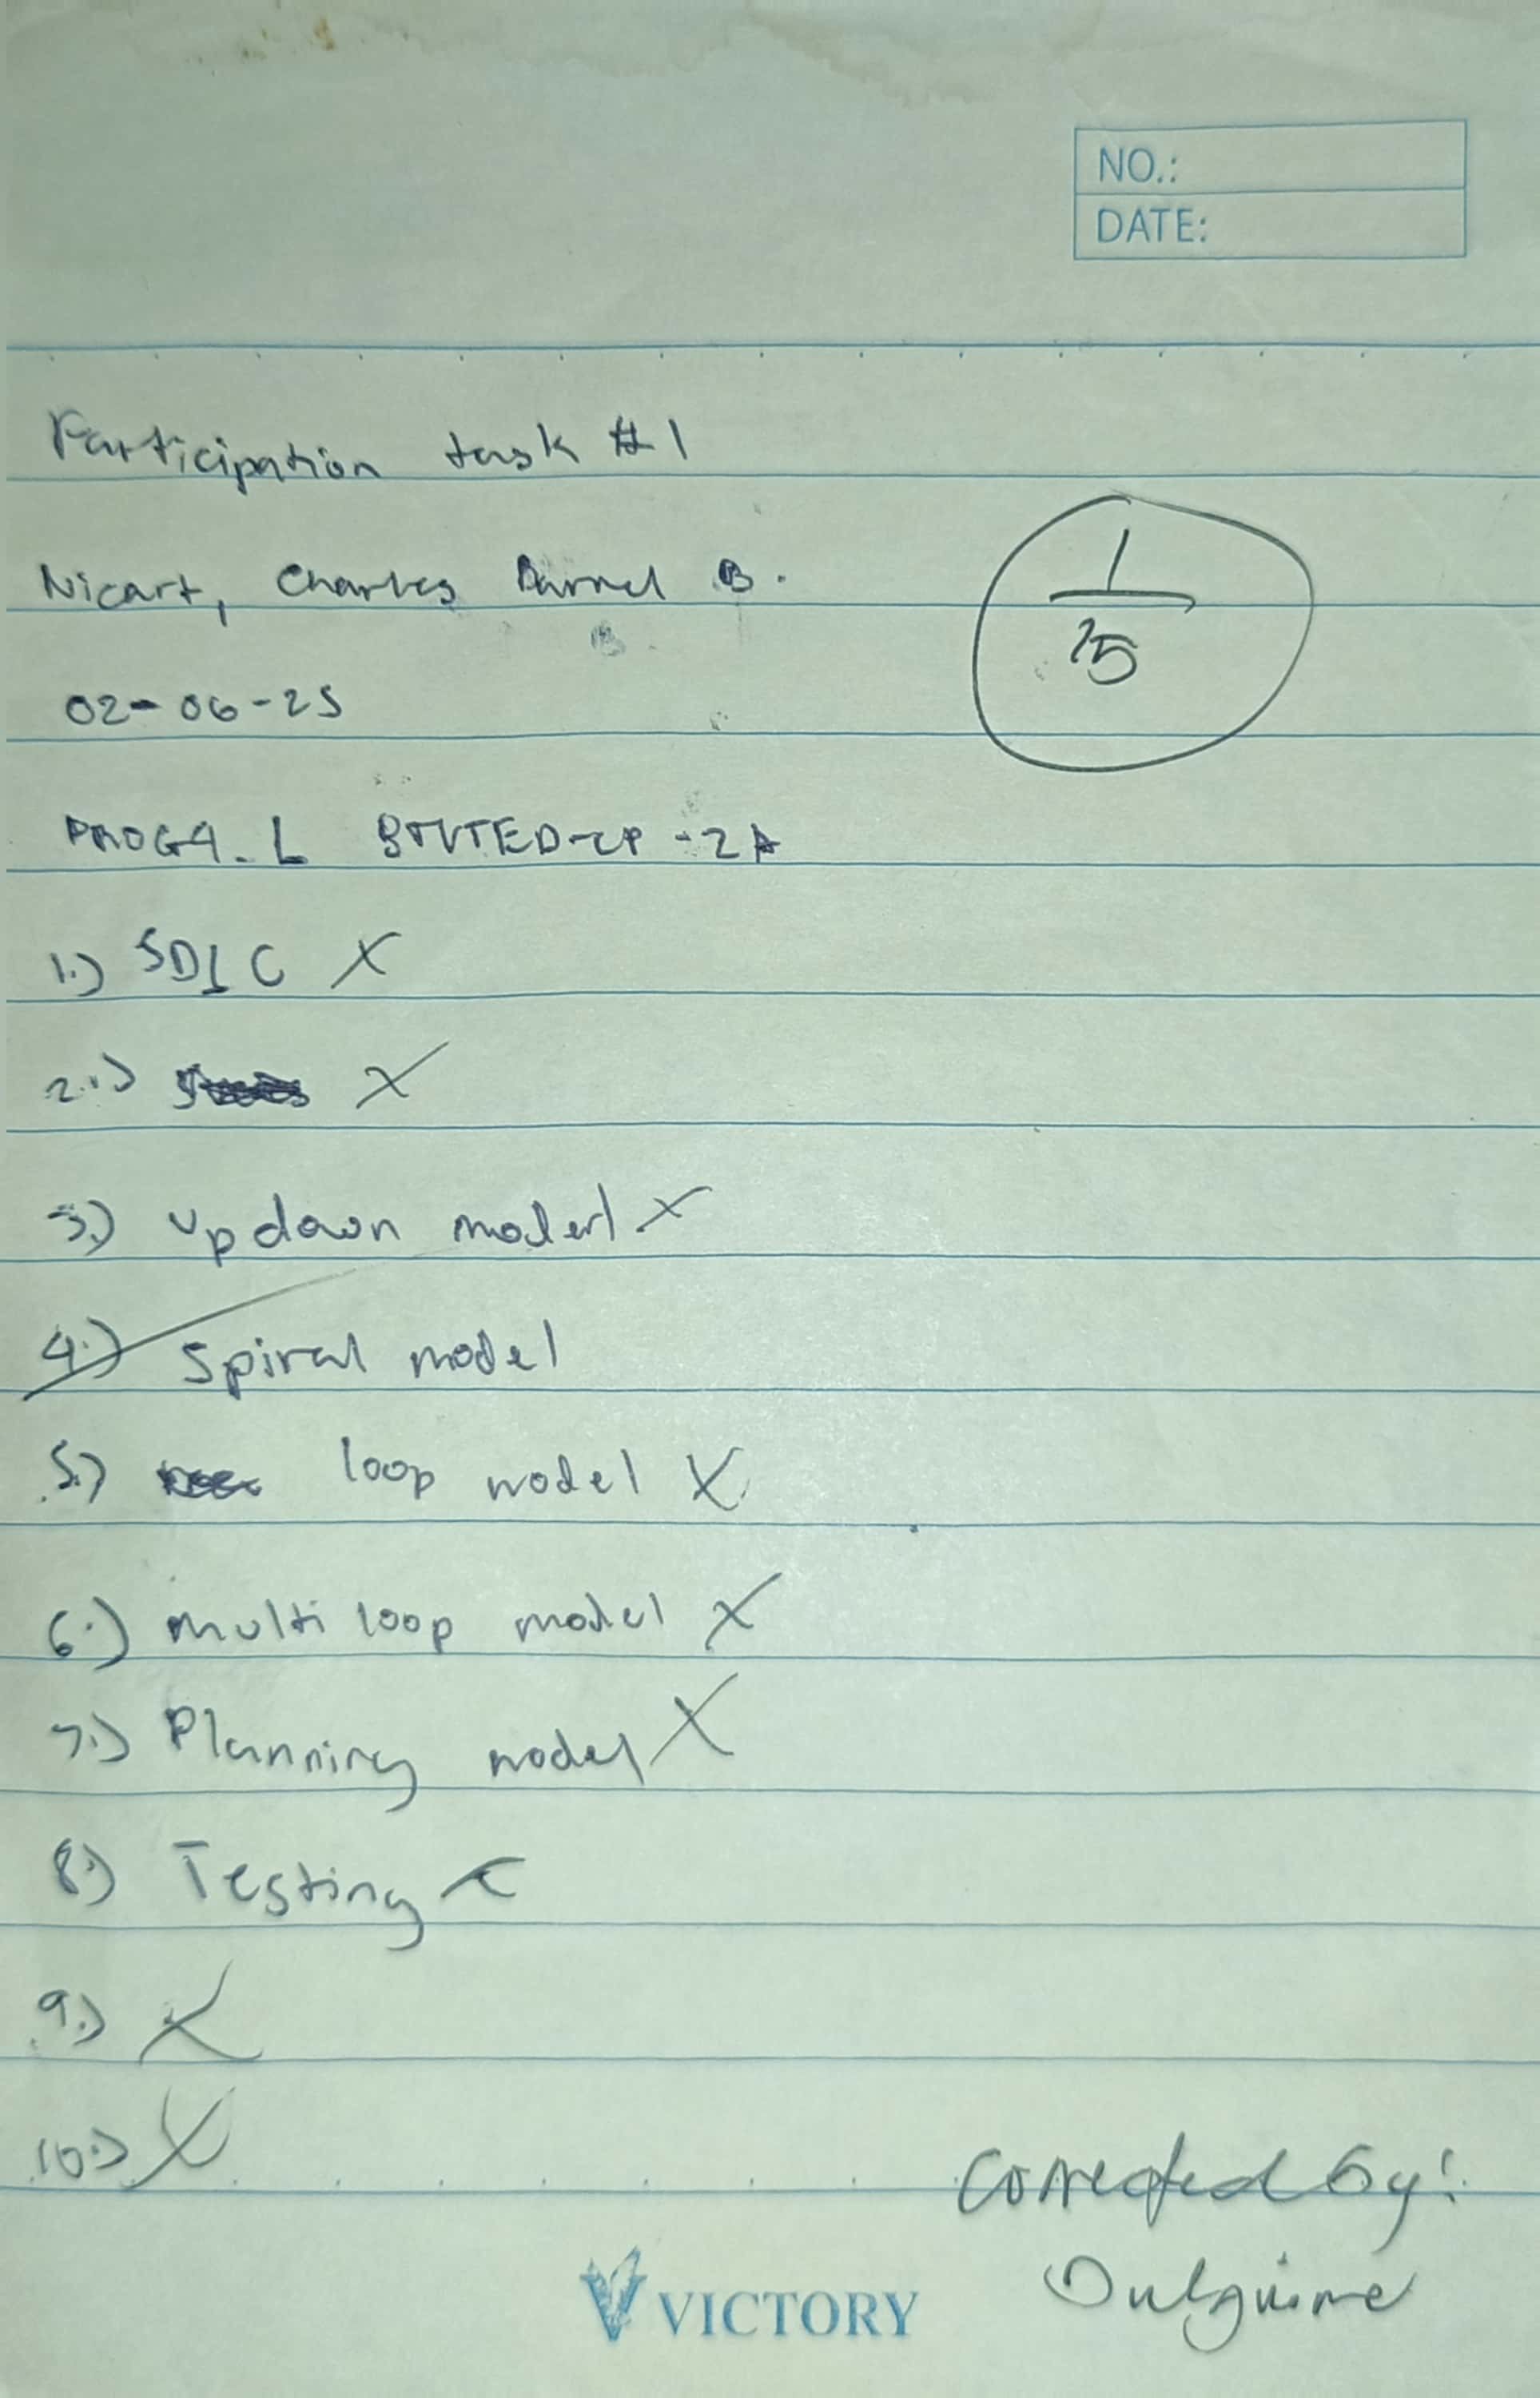 NO.:
DATE:
Participation task #1
Nicart, Charles Darrel B.
1
15
02-06-25
PROG4. L BTVTED-CP-2A
1.) SDLC X
2.) X
3.) Updown model X
4.) Spiral model
5.) loop model X
6.) multi loop model X
7.) Planning model X
8.) Testing
9.) X
10.) X
Corrected by:
VICTORY